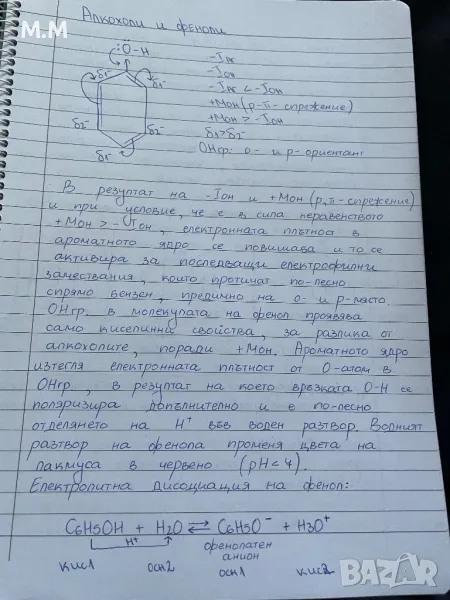 M.M
Алкохоли и феноли
:Ö-H
-Iar
-Iон
-Iar < -Iон
+Mон (p-π-спрежение)
+Mон > -Iон
δ1>δ2-
OHгр: о- и р-ориентант
δ1-
δ1-
δ2-
δ2-
δ1-
В резултат на -Iон и +Mон (p,π-спрежение)
и при условие, че е в сила неравенството
+Mон > -Iон, електронната плътност в
ароматното ядро се повишава и то се
активира за последващи електрофилни
замествания, които протичат по-лесно
спрямо бензен, предимно на о- и р-място.
OHгр. в молекулата на фенол проявява
само киселинна свойства, за разлика от
алкохолите, поради +Mон. Ароматното ядро
изтегля електронната плътност от О-атом в
OHгр., в резултат на което връзката О-Н се
поляризира допълнително и е по-лесно
отделянето на H⁺ във воден разтвор. Водният
разтвор на фенола променя цвета на
лакмуса в червено (pH<4).
Електролитна дисоциация на фенол:
C6H5OH + H2O ⇌ C6H5O⁻ + H3O⁺
H⁺
фенолатен
анион
кис1 осн2 осн1 кис2
BAZAR